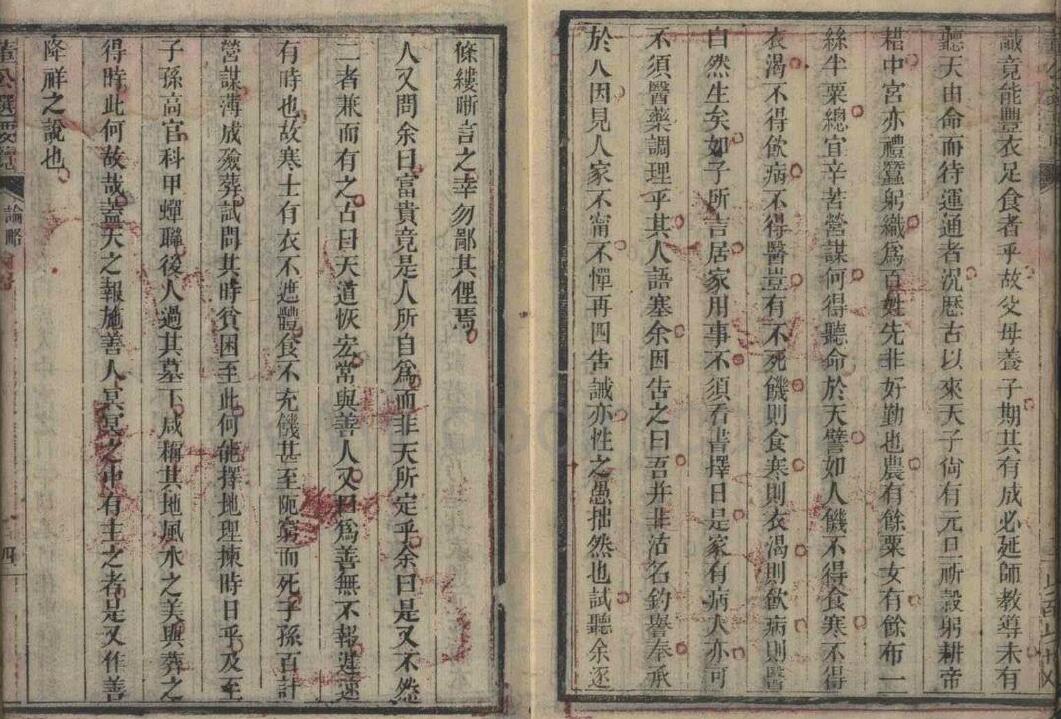 識竟能豐衣足食者乎故父母養子期其有成必延師教導未有
聽天由命而待運通者況歷古以來天子尙有元旦祈穀躬耕帝
耤中宮亦禮蠶躬織爲百姓先非好勤也農有餘粟女有餘布一
絲半粟總宜辛苦營謀何得聽命於天譬如人饑不得食寒不得
衣渴不得飲病不得醫豈有不死饑則食寒則衣渴則飲病則醫
自然生矣如子所言居家用事不須看書擇日是家有病人亦可
不須醫藥調理乎其人語塞余因告之曰吾幷非沽名釣譽奉承
於人因見人家不甯不憚再四告誡亦性之愚拙然也試聽余逐
條縷晰言之幸勿鄙其俚焉
人又問余曰富貴竟是人所自爲而非天所定乎余曰是又不然
二者兼而有之古曰天道恢宏常與善人又曰爲善無不報遲速
有時也故寒士有衣不遮體食不充饑甚至阨窮而死子孫百計
營謀薄成殮葬試問其時貧困至此何能擇地理揀時日乎及至
子孫高官科甲蟬聯後人過其墓下咸稱其地風水之美與葬之
得時此何故哉蓋天之報施善人冥冥之中有主之者是又作善
降祥之說也
董公選要覽
論略
四